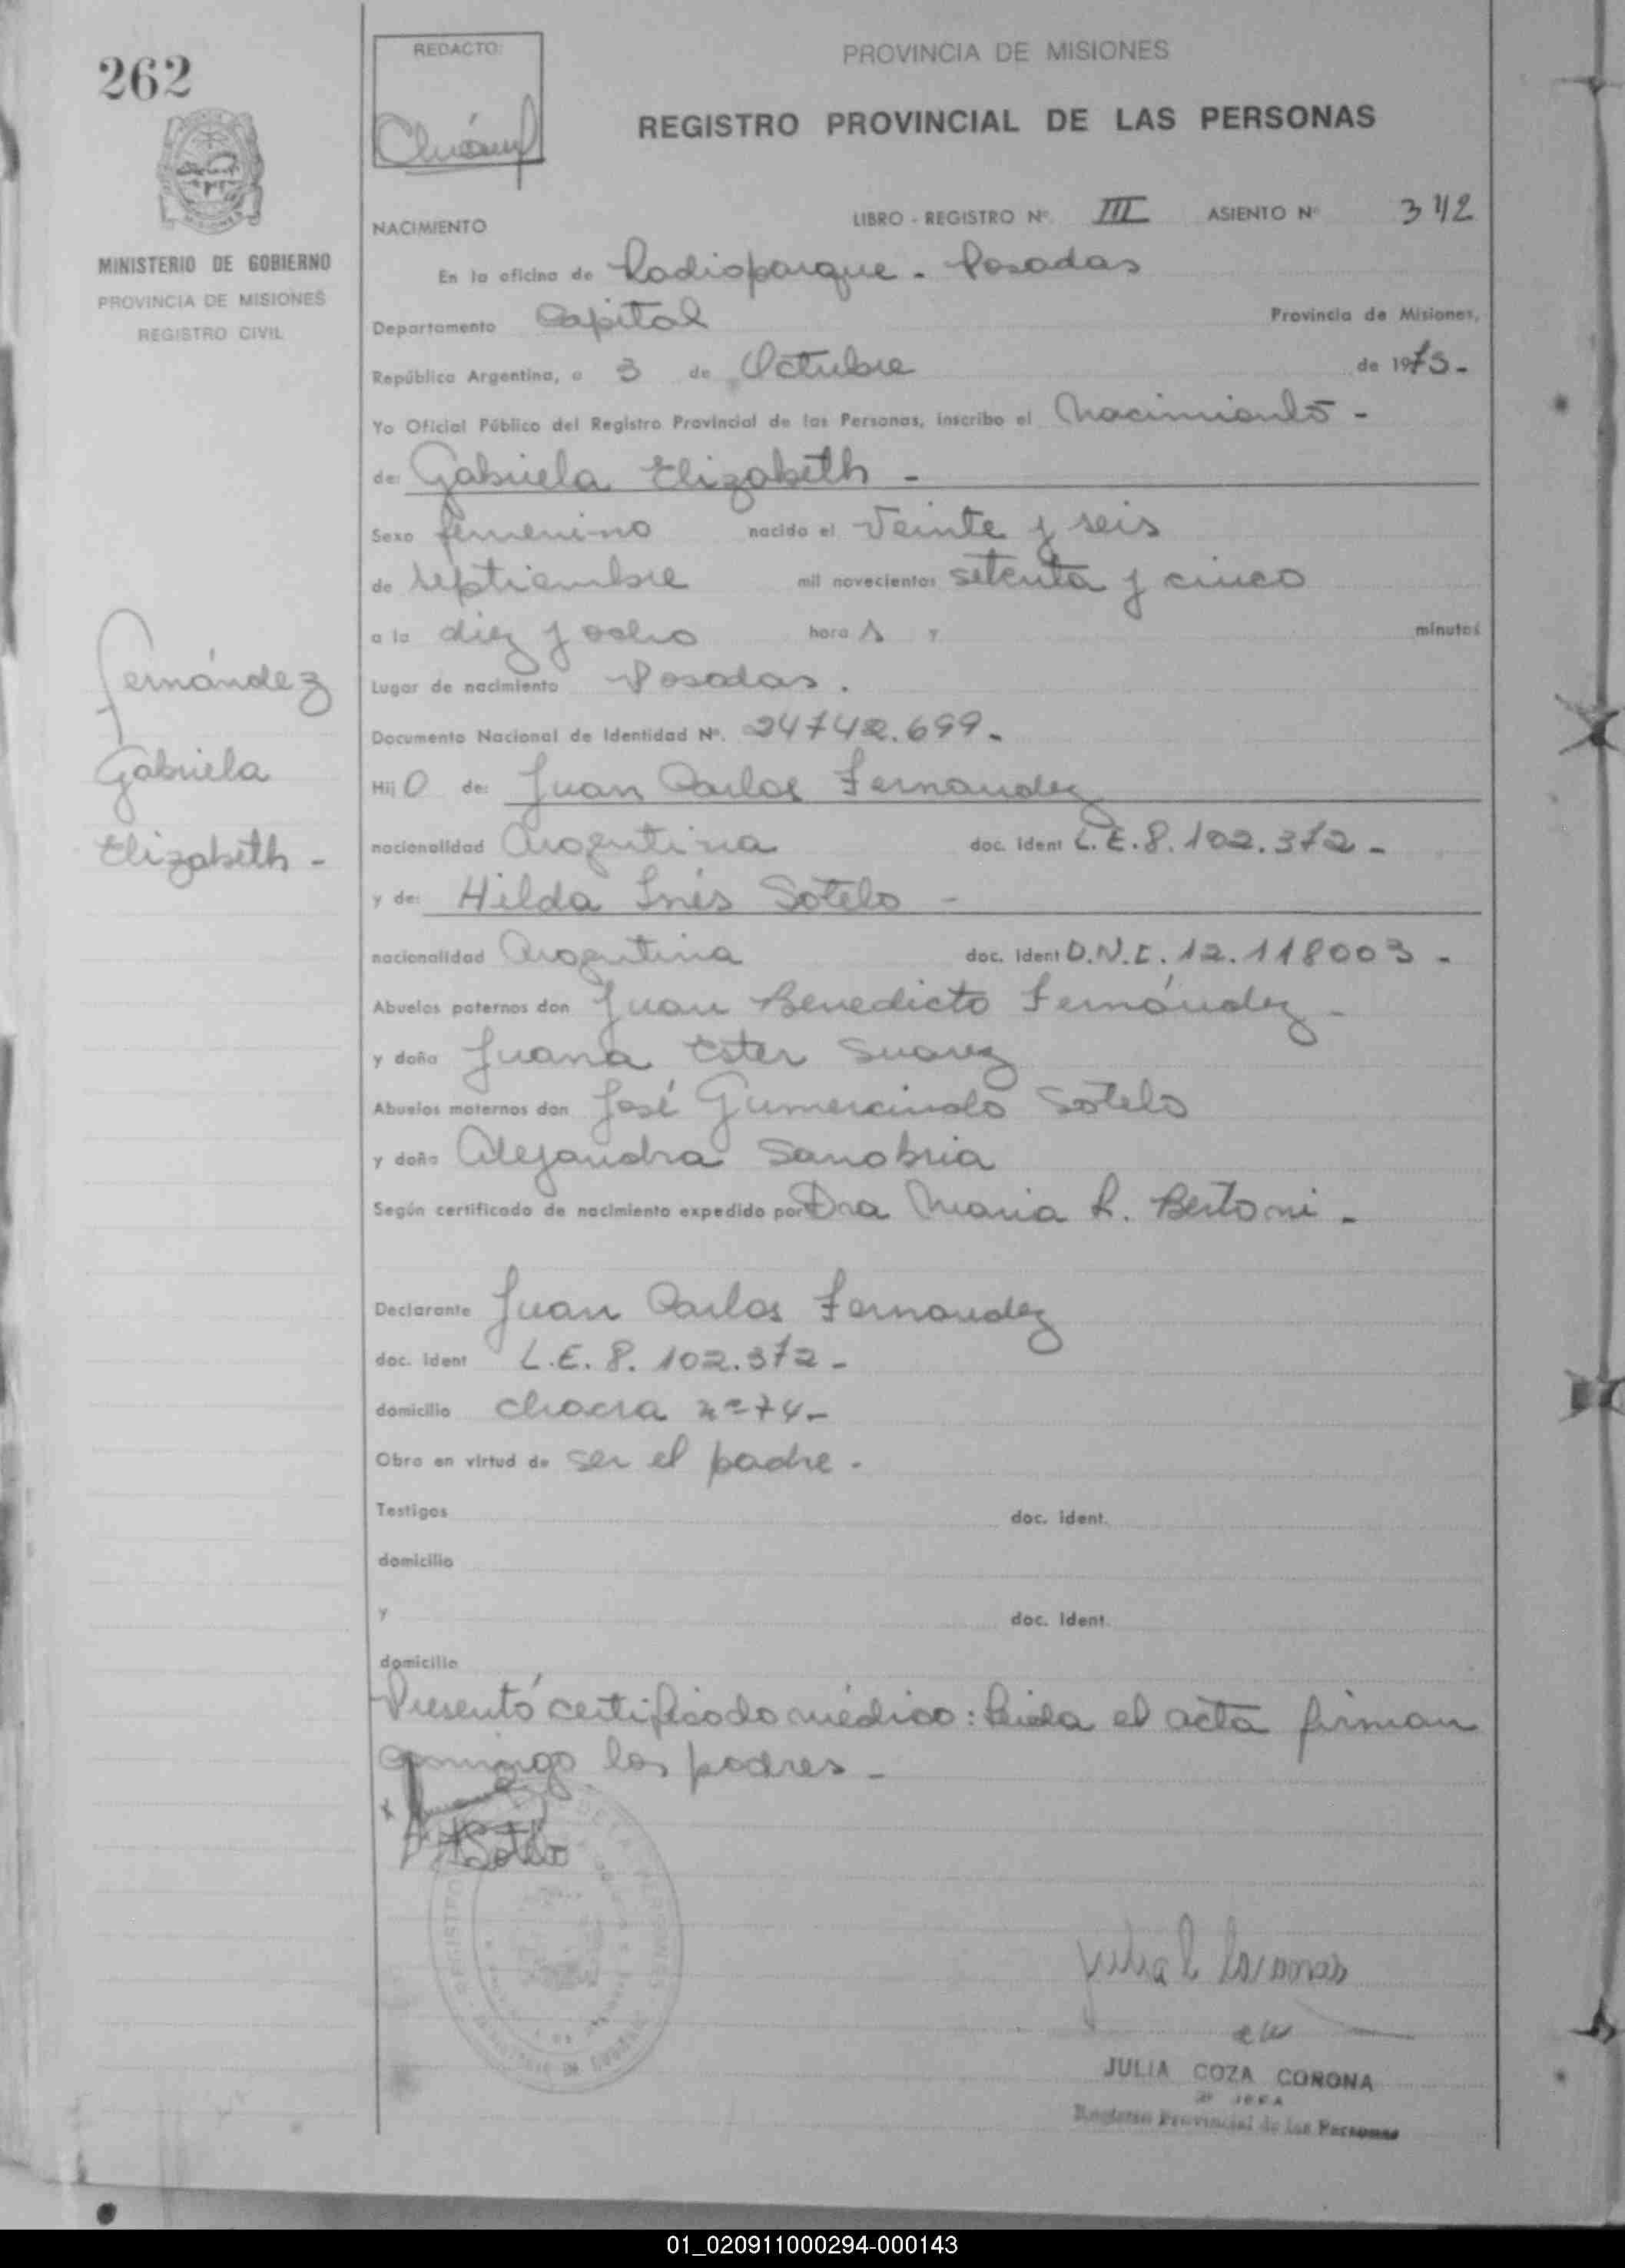 262
REDACTO:
PROVINCIA DE MISIONES
REGISTRO PROVINCIAL DE LAS PERSONAS
MINISTERIO DE GOBIERNO
PROVINCIA DE MISIONES
REGISTRO CIVIL
NACIMIENTO LIBRO - REGISTRO Nº. III ASIENTO Nº 342
En la oficina de Radioparque - Posadas
Departamento Capital Provincia de Misiones,
República Argentina, a 3 de Octubre de 1975 -
Yo Oficial Público del Registro Provincial de las Personas, inscribo el Nacimiento -
de: Gabriela Elizabeth -
Sexo femenino nacido el Veinte y seis
de septiembre mil novecientos setenta y cinco
a la diez y ocho hora s y minutos
Fernández
Gabriela
Elizabeth -
Lugar de nacimiento Posadas .
Documento Nacional de Identidad Nº. 24742.699 -
Hij o de: Juan Carlos Fernandez
nacionalidad Argentina doc. ident L.E. 8.102.372 -
y de: Hilda Inés Sotelo -
nacionalidad Argentina doc. ident D.N.I. 12.118003 -
Abuelos paternos don Juan Benedicto Fernández -
y doña Juana Ester Suarez
Abuelos maternos don José Gumercindo Sotelo
y doña Alejandra Sanabria
Según certificado de nacimiento expedido por Dra Maria R. Bertoni -
Declarante Juan Carlos Fernandez
doc. ident L.E. 8.102.372 -
domicilio chacra nº 74 -
Obra en virtud de ser el padre -
Testigos doc. ident.
domicilio
y doc. ident.
domicilio
Presentó certificado médico: Leida el acta firman
conmigo los padres -
JULIA COZA CORONA
2º JEFA
Registro Provincial de las Personas
01_020911000294-000143